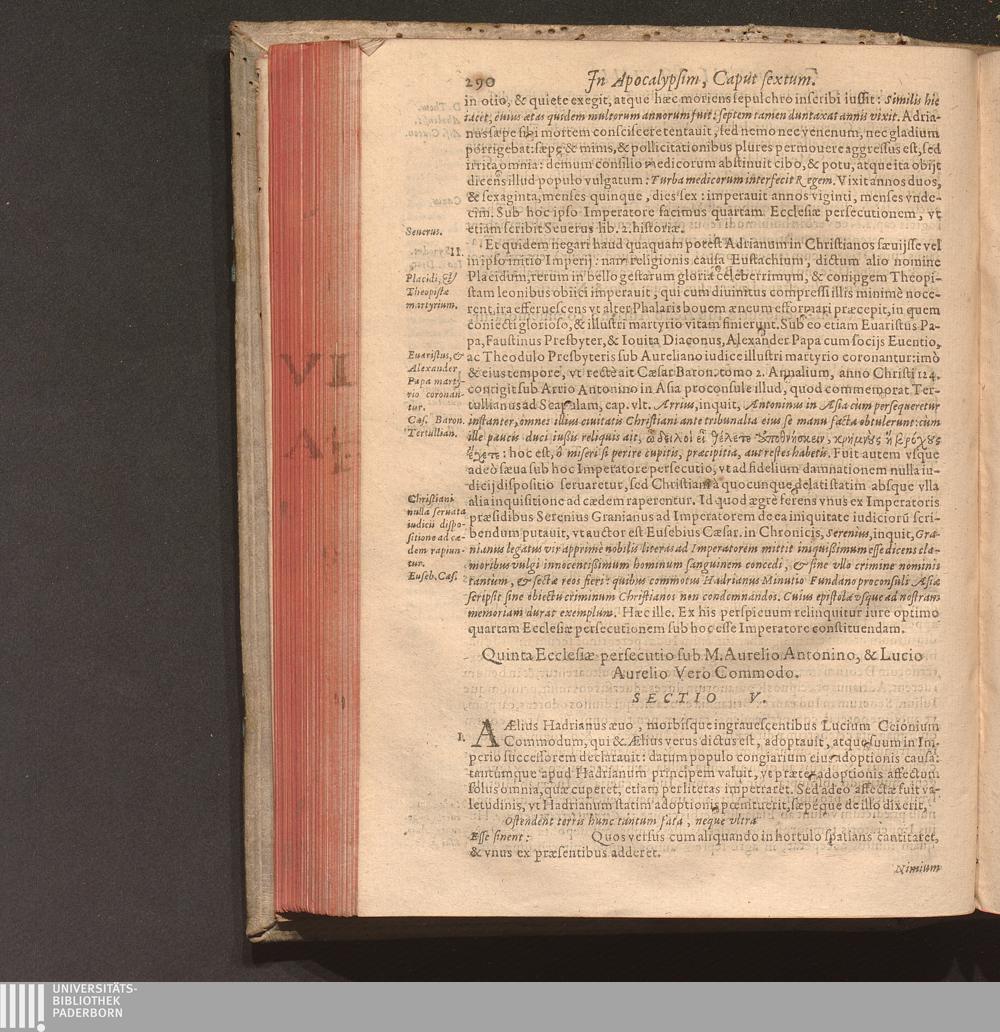 290
In Apocalypsim, Caput sextum.
in otio, & quiete exegit, atque hæc moriens sepulchro inscribi iussit: Similis hic
iacet, cuius ætas quidem multorum annorum fuit: septem tamen duntaxat annis vixit. Adria-
nus sæpe sibi mortem consciscere tentauit, sed nemo nec venenum, nec gladium
porrigebat: sæpe & minis, & pollicitationibus plures permouere aggressus est, sed
irrita omnia: demum consilio medicorum abstinuit cibo, & potu, atque ita obijt
dicens illud populo vulgatum: Turba medicorum interfecit Regem. Vixit annos duos,
& sexaginta, menses quinque, dies sex: imperauit annos viginti, menses vnde-
cim. Sub hoc ipso Imperatore facimus quartam Ecclesiæ persecutionem, vt
etiam scribit Seuerus lib. 2. historiæ.
Seuerus.
III.
Et quidem negari haud quaquam potest Adrianum in Christianos sæuijsse vel
in ipso initio Imperij: nam religionis causa Eustachium, dictum alio nomine
Placidum, rerum in bello gestarum gloria celeberrimum, & coniugem Theopi-
stam leonibus obiici imperauit, qui cum diuinitus compressi illis minimè noce-
rent, ira efferuescens vt alter Phalaris bouem æneum efformari præcepit, in quem
coniecti glorioso, & illustri martyrio vitam finierunt. Sub eo etiam Euaristus Pa-
pa, Faustinus Presbyter, & Iouita Diaconus, Alexander Papa cum socijs Euentio,
ac Theodulo Presbyteris sub Aureliano iudice illustri martyrio coronantur: imò
& eius tempore, vt rectè ait Cæsar Baron. tomo 2. Annalium, anno Christi 124.
contigit sub Arrio Antonino in Asia proconsule illud, quod commemorat Ter-
tullianus ad Scapulam, cap. vlt. Arrius, inquit, Antoninus in Asia cum persequeretur
instanter, omnes illius ciuitatis Christiani ante tribunalia eius se manu facta obtulerunt: cùm
ille paucis duci iussis reliquis ait, ὦ δειλοὶ εἰ θέλετε ἀποθνήσκειν, κρημνοὺς ἢ βρόχους
ἔχετε: hoc est, ô miseri si perire cupitis, præcipitia, aut restes habetis. Fuit autem vsque
adeò sæua sub hoc Imperatore persecutio, vt ad fidelium damnationem nulla iu-
dicij dispositio seruaretur, sed Christiani à quocunque delati statim absque vlla
alia inquisitione ad cædem raperentur. Id quod ægrè ferens vnus ex Imperatoris
præsidibus Serenius Granianus ad Imperatorem de ea iniquitate iudiciorū scri-
bendum putauit, vt auctor est Eusebius Cæsar. in Chronicis, Serenius, inquit, Gra-
nianus legatus vir apprimè nobilis literas ad Imperatorem mittit iniquissimum esse dicens cla-
moribus vulgi innocentissimum hominum sanguinem concedi, & sine vllo crimine nominis
tantùm, & sectæ reos fieri: quibus commotus Hadrianus Minutio Fundano proconsuli Asiæ
scripsit sine obiectu criminum Christianos non condemnandos. Cuius epistolæ vsque ad nostram
memoriam durat exemplum. Hæc ille. Ex his perspicuum relinquitur iure optimo
quartam Ecclesiæ persecutionem sub hoc esse Imperatore constituendam.
Placidi, &
Theopistæ
martyrium.
Euaristus, &
Alexander
Papa marty-
rio coronan-
tur.
Cæs. Baron.
Tertullian.
Christiani
nulla seruata
iudicii dispo-
sitione ad cæ-
dem rapiun-
tur.
Euseb. Cæs.
Quinta Ecclesiæ persecutio sub M. Aurelio Antonino, & Lucio
Aurelio Vero Commodo.
SECTIO V.
I.
AÆlius Hadrianus æuo, morbisque ingrauescentibus Lucium Ceionium
Commodum, qui & Ælius verus dictus est, adoptauit, atque suum in Im-
perio successorem declarauit: datum populo congiarium eius adoptionis causa:
tantumque apud Hadrianum principem valuit, vt præter adoptionis affectum
solus omnia, quæ cuperet, etiam per literas impetraret. Sed adeo affectæ fuit va-
letudinis, vt Hadrianum statim adoptionis pœnituerit, sæpeque de illo dixerit,
Ostendent terris hunc tantum fata, neque vltra
Esse sinent: Quos versus cum aliquando in hortulo spatians cantitaret,
& vnus ex præsentibus adderet.
Nimium
UNIVERSITÄTS-
BIBLIOTHEK
PADERBORN